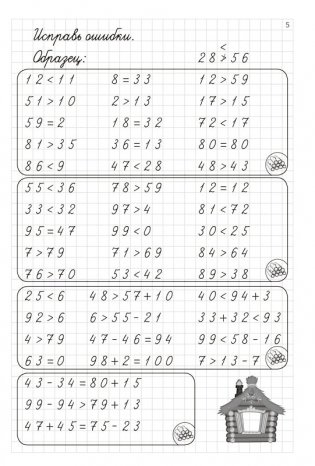 5
Исправь ошибки.
<
Образец: 28 > 56
12 < 11 8 = 33 12 > 59
51 > 10 2 > 13 17 > 15
59 = 2 18 = 32 72 < 17
81 > 35 36 = 13 80 = 80
86 < 9 47 < 28 48 > 43
55 < 36 78 > 59 12 = 12
33 < 32 97 > 4 81 < 72
95 = 47 99 < 0 30 < 25
7 > 79 71 > 69 84 > 64
76 > 70 53 < 42 89 > 38
25 < 6 48 > 57 + 10 40 < 94 + 3
92 > 6 6 > 55 - 21 33 + 32 < 93
4 > 79 47 - 46 = 94 99 < 58 - 16
63 = 0 98 + 2 = 100 7 > 13 - 7
43 - 34 = 80 + 15
99 - 94 > 79 + 13
47 + 45 = 75 - 23